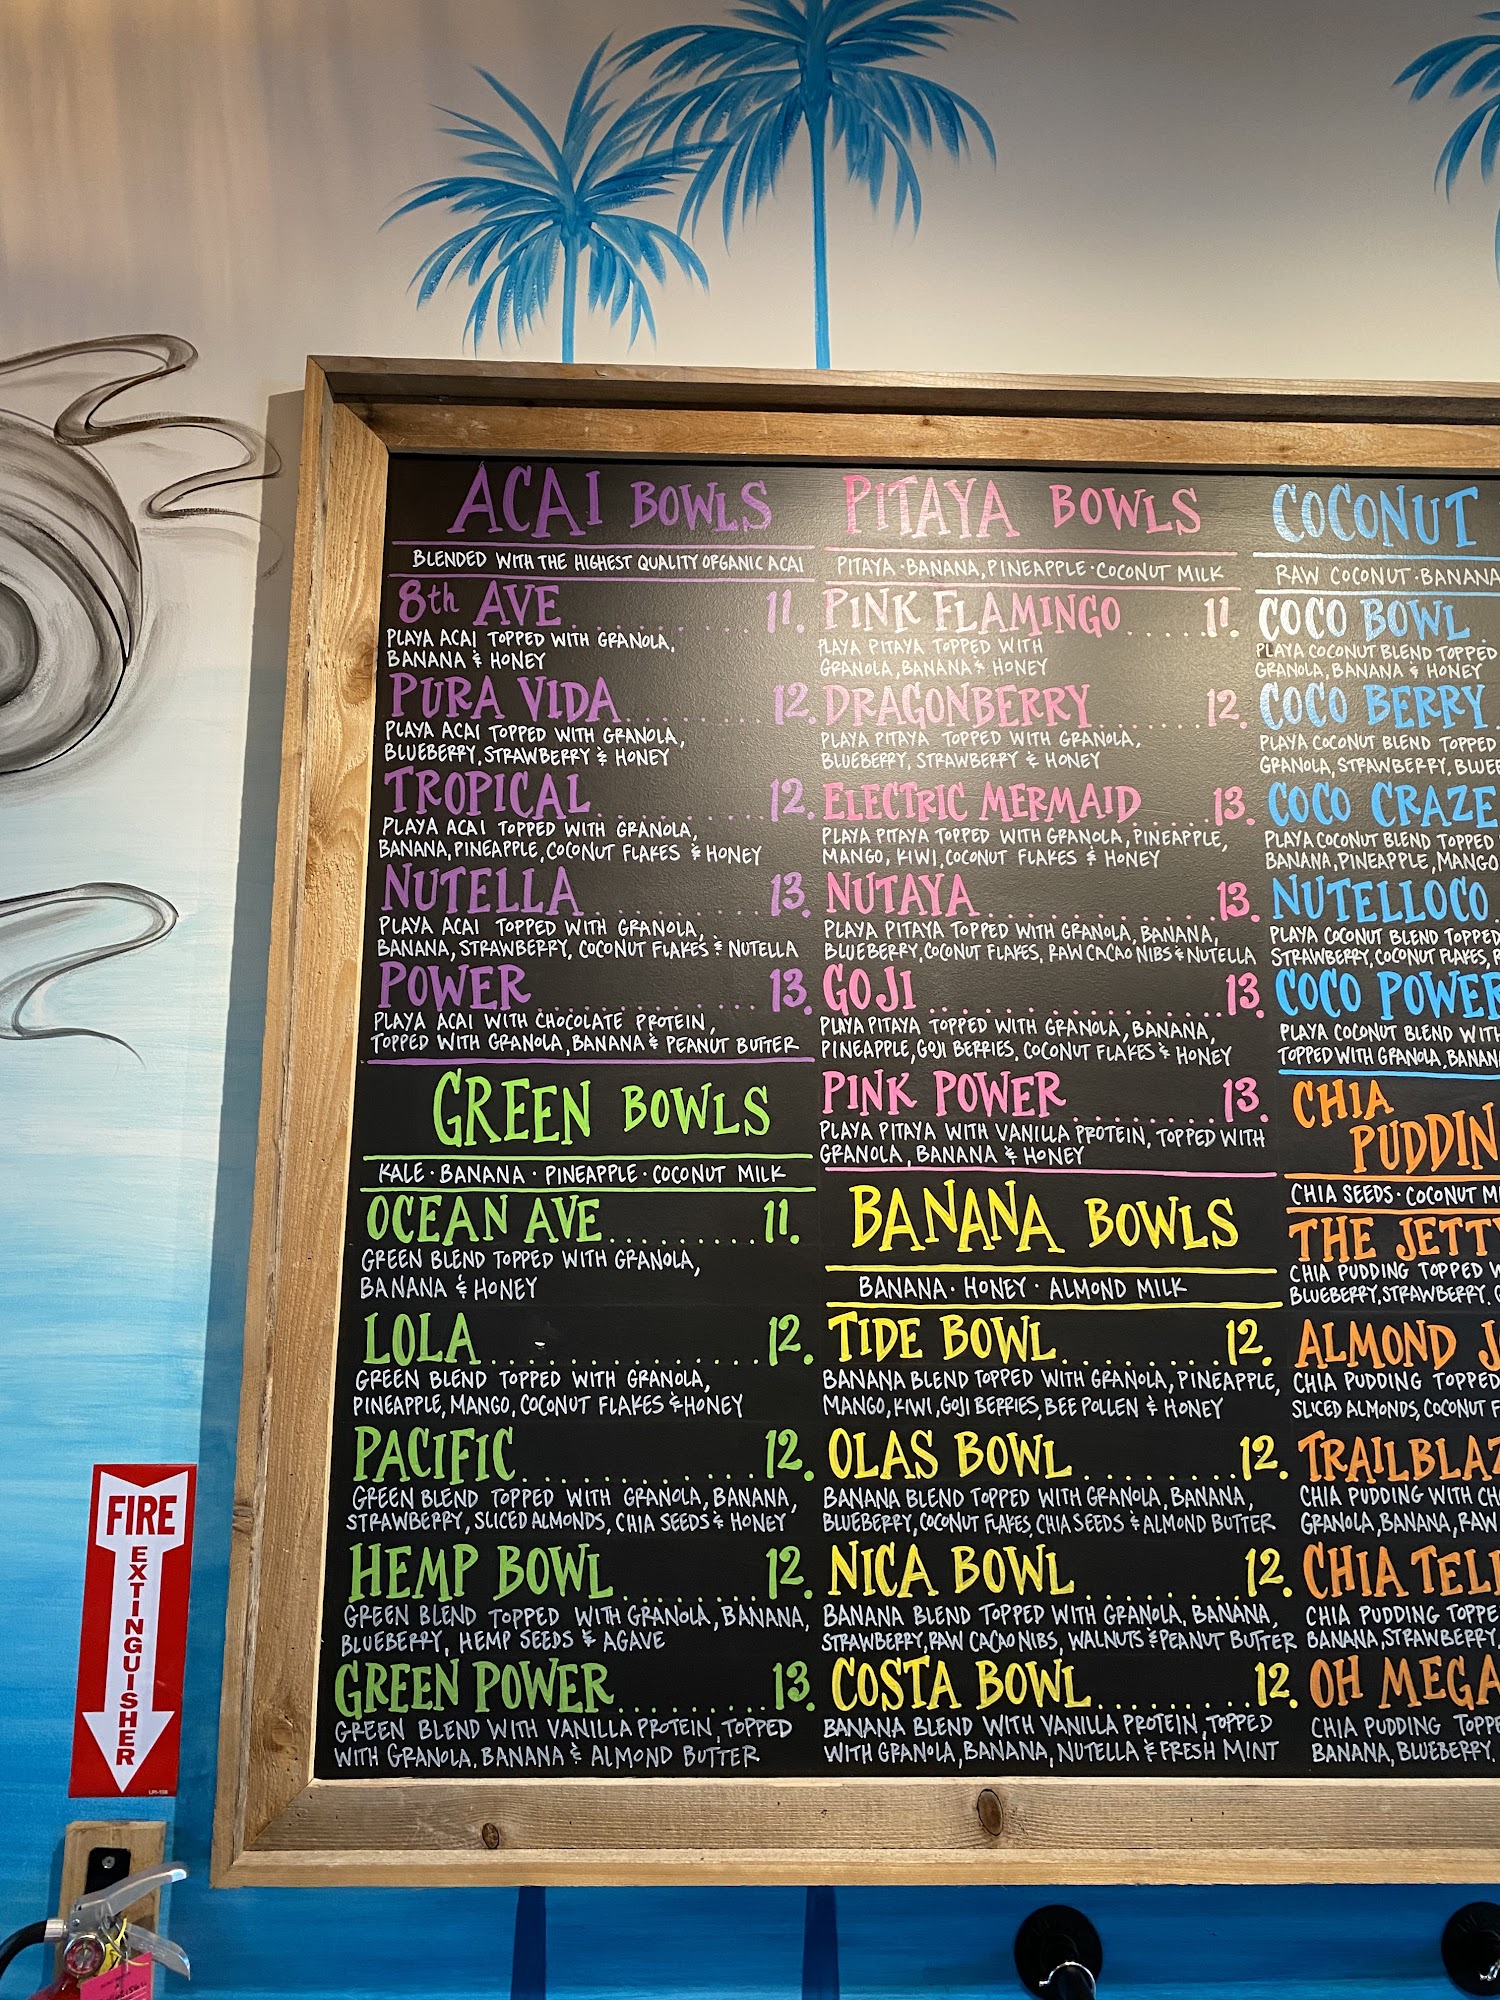 ACAI BOWLS
BLENDED WITH THE HIGHEST QUALITY ORGANIC ACAI
8th AVE.......... 11.
PLAYA ACAI TOPPED WITH GRANOLA,
BANANA & HONEY
PURA VIDA........ 12.
PLAYA ACAI TOPPED WITH GRANOLA,
BLUEBERRY, STRAWBERRY & HONEY
TROPICAL......... 12.
PLAYA ACAI TOPPED WITH GRANOLA,
BANANA, PINEAPPLE, COCONUT FLAKES & HONEY
NUTELLA.......... 13.
PLAYA ACAI TOPPED WITH GRANOLA,
BANANA, STRAWBERRY, COCONUT FLAKES & NUTELLA
POWER............ 13.
PLAYA ACAI WITH CHOCOLATE PROTEIN,
TOPPED WITH GRANOLA, BANANA & PEANUT BUTTER
GREEN BOWLS
KALE · BANANA · PINEAPPLE · COCONUT MILK
OCEAN AVE......... 11.
GREEN BLEND TOPPED WITH GRANOLA,
BANANA & HONEY
LOLA.............. 12.
GREEN BLEND TOPPED WITH GRANOLA,
PINEAPPLE, MANGO, COCONUT FLAKES & HONEY
PACIFIC............ 12.
GREEN BLEND TOPPED WITH GRANOLA, BANANA,
STRAWBERRY, SLICED ALMONDS, CHIA SEEDS & HONEY
HEMP BOWL........ 12.
GREEN BLEND TOPPED WITH GRANOLA, BANANA,
BLUEBERRY, HEMP SEEDS & AGAVE
GREEN POWER....... 13.
GREEN BLEND WITH VANILLA PROTEIN, TOPPED
WITH GRANOLA, BANANA & ALMOND BUTTER
PITAYA BOWLS
PITAYA · BANANA, PINEAPPLE · COCONUT MILK
PINK FLAMINGO..... 11.
PLAYA PITAYA TOPPED WITH
GRANOLA, BANANA & HONEY
DRAGONBERRY...... 12.
PLAYA PITAYA TOPPED WITH GRANOLA,
BLUEBERRY, STRAWBERRY & HONEY
ELECTRIC MERMAID.... 13.
PLAYA PITAYA TOPPED WITH GRANOLA, PINEAPPLE,
MANGO, KIWI, COCONUT FLAKES & HONEY
NUTAYA............ 13.
PLAYA PITAYA TOPPED WITH GRANOLA, BANANA,
BLUEBERRY, COCONUT FLAKES, RAW CACAO NIBS & NUTELLA
GOJI............... 13.
PLAYA PITAYA TOPPED WITH GRANOLA, BANANA,
PINEAPPLE, GOJI BERRIES, COCONUT FLAKES & HONEY
PINK POWER........ 13.
PLAYA PITAYA WITH VANILLA PROTEIN, TOPPED WITH
GRANOLA, BANANA & HONEY
BANANA BOWLS
BANANA · HONEY · ALMOND MILK
TIDE BOWL........ 12.
BANANA BLEND TOPPED WITH GRANOLA, PINEAPPLE,
MANGO, KIWI, GOJI BERRIES, BEE POLLEN & HONEY
OLAS BOWL........ 12.
BANANA BLEND TOPPED WITH GRANOLA, BANANA,
BLUEBERRY, COCONUT FLAKES, CHIA SEEDS & ALMOND BUTTER
NICA BOWL........ 12.
BANANA BLEND TOPPED WITH GRANOLA, BANANA,
STRAWBERRY, RAW CACAO NIBS, WALNUTS & PEANUT BUTTER
COSTA BOWL....... 12.
BANANA BLEND WITH VANILLA PROTEIN, TOPPED
WITH GRANOLA, BANANA, NUTELLA & FRESH MINT
COCONUT
RAW COCONUT · BANANA
COCO BOWL
PLAYA COCONUT BLEND TOPPED
GRANOLA, BANANA & HONEY
COCO BERRY
PLAYA COCONUT BLEND TOPPED
GRANOLA, STRAWBERRY, BLUE
COCO CRAZE
PLAYA COCONUT BLEND TOPPED
BANANA, PINEAPPLE, MANGO
NUTELLOCO
PLAYA COCONUT BLEND TOPPED
STRAWBERRY, COCONUT FLAKES,
COCO POWER
PLAYA COCONUT BLEND WITH
TOPPED WITH GRANOLA, BANAN
CHIA
PUDDIN
CHIA SEEDS · COCONUT M
THE JETT
CHIA PUDDING TOPPED
BLUEBERRY, STRAWBERRY,
ALMOND J
CHIA PUDDING TOPPED
SLICED ALMONDS, COCONUT F
TRAILBLAZ
CHIA PUDDING WITH CH
GRANOLA, BANANA, RAW
CHIA TEL
CHIA PUDDING TOPPE
BANANA, STRAWBERRY,
OH MEGA
CHIA PUDDING TOPPE
BANANA, BLUEBERRY,
FIRE
EXTINGUISHER